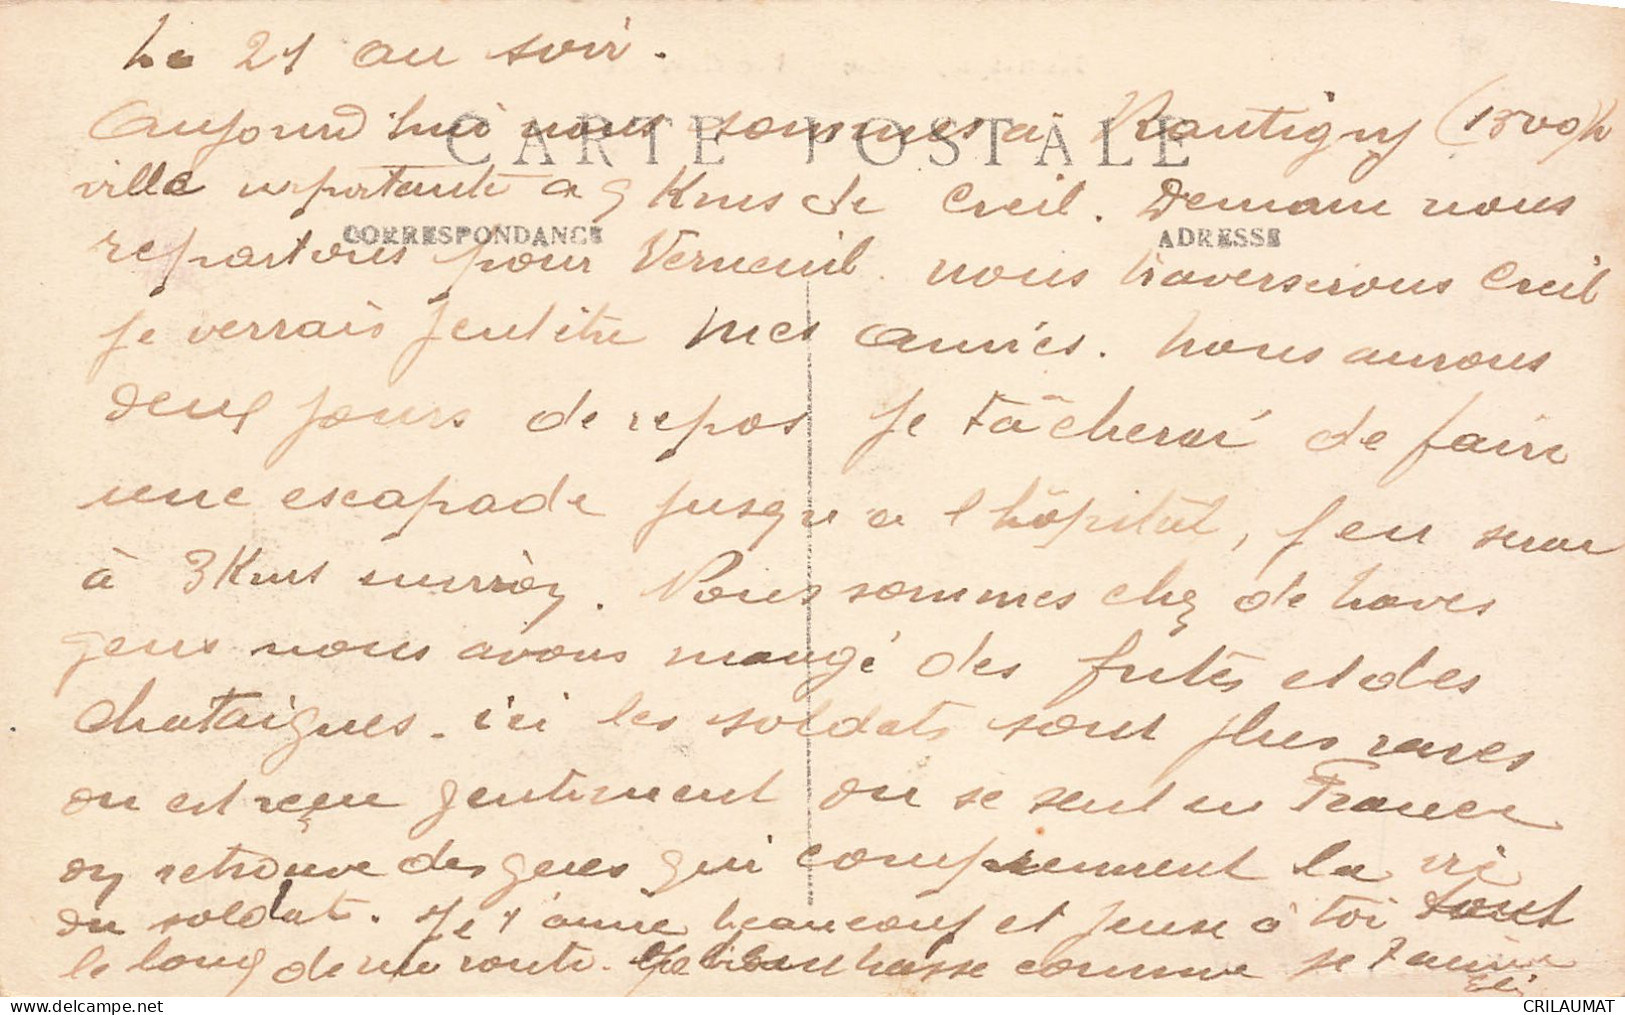 Le 21 au soir.
CARTE POSTALE
Aujourd'hui nous sommes à Rantigny (1500 h
ville importante a 9 Kms de Creil. Demain nous
CORRESPONDANCE
ADRESSE
repartons pour Verneuil. nous traverserons Creil
je verrais peut être mes amies. nous aurons
deux jours de repos je tâcherai de faire
une escapade jusqu a l hôpital, j en serai
à 3 Kms environ. Nous sommes chez de braves
gens nous avons mangé des frites et des
chataignes. ici les soldats sont plus rares
on est reçu gentiment on se sent en France
on retrouve des gens qui comprennent la vie
du soldat. Je t'aime beaucoup et pense à toi tout
le long de ma route. Je comme je t'aime
CRILAUMAT